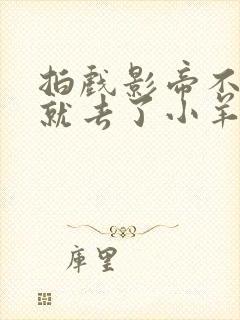 拍戏影帝不
就去了小羊
库里